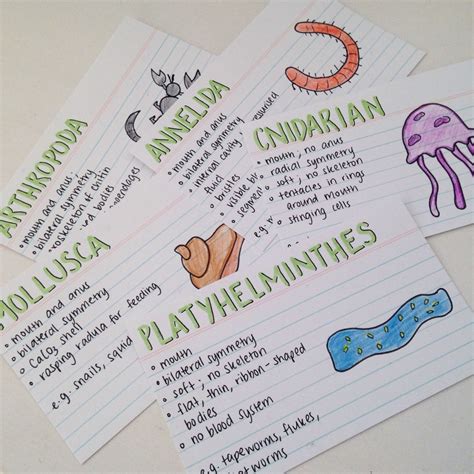 ARTHROPODA
mouth and anus
bilateral symmetry
exoskeleton of chitin
bodies
ANNELIDA
mouth and anus
bilateral symmetry
internal cavity
fluid
bristles
segment
CNIDARIAN
mouth; no anus
radial symmetry
soft; no skeleton
tentacles in rings
around mouth
stinging cells
e.g.
MOLLUSCA
mouth and anus
bilateral symmetry
CaCO3 shell
rasping radula for feeding
e.g. snails, squid
PLATYHELMINTHES
mouth
bilateral symmetry
soft; no skeleton
flat, thin, ribbon-shaped
bodies
no blood system
e.g. tapeworms, flukes,